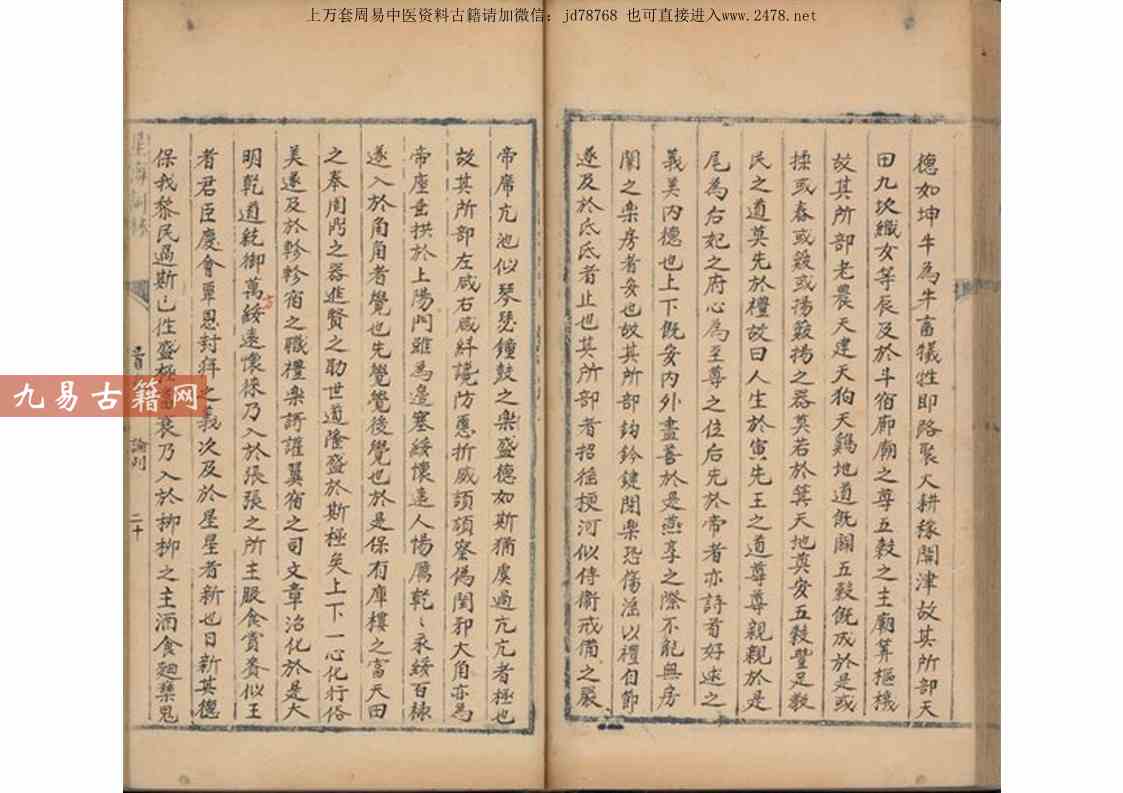 上万套周易中医资料古籍请加微信：jd78768 也可直接进入www.2478.net
德如坤牛為牛畜犧牲即路聚大耕稼開津故其所部天
田九坎織女等辰及於斗宿廊廟之尊五穀之主廟筭樞機
故其所部老農天建天狗天鷄地道既闢五穀既成於是或
揉或舂或簸或揚簸揚之器莫若於箕天地奠安五穀豐足教
民之道莫先於禮故曰人生於寅先王之道尊尊親親於是
尾為后妃之府心為至尊之位后先於帝者亦詩首好逑之
義美内德也上下既安内外盡善於是燕享之際不能無房
闈之樂房者安也故其所部鈎鈐鍵閉樂恐傷滛以禮自節
遂及於氐氐者止也其所部者招摇梗河似侍衞戒備之嚴
帝席亢池似琴瑟鐘鼓之樂盛德如斯猶虞過亢亢者極也
故其所部左咸右咸糾讒防慝折威頡頏察偽閑邪大角亦為
帝座垂拱於上陽門雖為邉塞綏懷遠人惕厲乾乾永綏百祿
遂入於角角者覺也先覺覺後覺也於是保有庫樓之富天田
之奉周鼎之器進賢之助世道隆盛於斯極矣上下一心化行俗
美遂及於軫軫宿之職禮樂謌讙翼宿之司文章治化於是大
明乾道統御萬方綏遠懷徠乃入於張張之所主服食賞賚似王
者君臣慶會覃恩封拜之義次及於星星者新也日新其德
保我黎民過斯已徃盛極當衰乃入於柳柳之主酒食廻樂鬼
論列
二十
九易古籍网